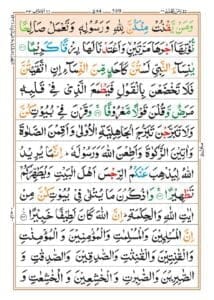 وَمَنْ يَّقْنُتْ مِنْكُنَّ لِلّٰهِ وَرَسُوْلِهٖ وَتَعْمَلْ صَالِحًا
نُّؤْتِهَآ اَجْرَهَا مَرَّتَيْنِ وَاَعْتَدْنَا لَهَا رِزْقًا كَرِيْمًا
يٰنِسَآءَ النَّبِيِّ لَسْتُنَّ كَاَحَدٍ مِّنَ النِّسَآءِ اِنِ اتَّقَيْتُنَّ
فَلَا تَخْضَعْنَ بِالْقَوْلِ فَيَطْمَعَ الَّذِيْ فِيْ قَلْبِهٖ
مَرَضٌ وَّقُلْنَ قَوْلًا مَّعْرُوْفًا وَقَرْنَ فِيْ بُيُوْتِكُنَّ
وَلَا تَبَرَّجْنَ تَبَرُّجَ الْجَاهِلِيَّةِ الْاُوْلٰى وَاَقِمْنَ الصَّلٰوةَ
وَاٰتِيْنَ الزَّكٰوةَ وَاَطِعْنَ اللّٰهَ وَرَسُوْلَهٗ اِنَّمَا يُرِيْدُ
اللّٰهُ لِيُذْهِبَ عَنْكُمُ الرِّجْسَ اَهْلَ الْبَيْتِ وَيُطَهِّرَكُمْ
تَطْهِيْرًا وَاذْكُرْنَ مَا يُتْلٰى فِيْ بُيُوْتِكُنَّ مِنْ
اٰيٰتِ اللّٰهِ وَالْحِكْمَةِ اِنَّ اللّٰهَ كَانَ لَطِيْفًا خَبِيْرًا
اِنَّ الْمُسْلِمِيْنَ وَالْمُسْلِمٰتِ وَالْمُؤْمِنِيْنَ وَالْمُؤْمِنٰتِ
وَالْقٰنِتِيْنَ وَالْقٰنِتٰتِ وَالصّٰدِقِيْنَ وَالصّٰدِقٰتِ وَ
الصّٰبِرِيْنَ وَالصّٰبِرٰتِ وَالْخٰشِعِيْنَ وَالْخٰشِعٰتِ وَ